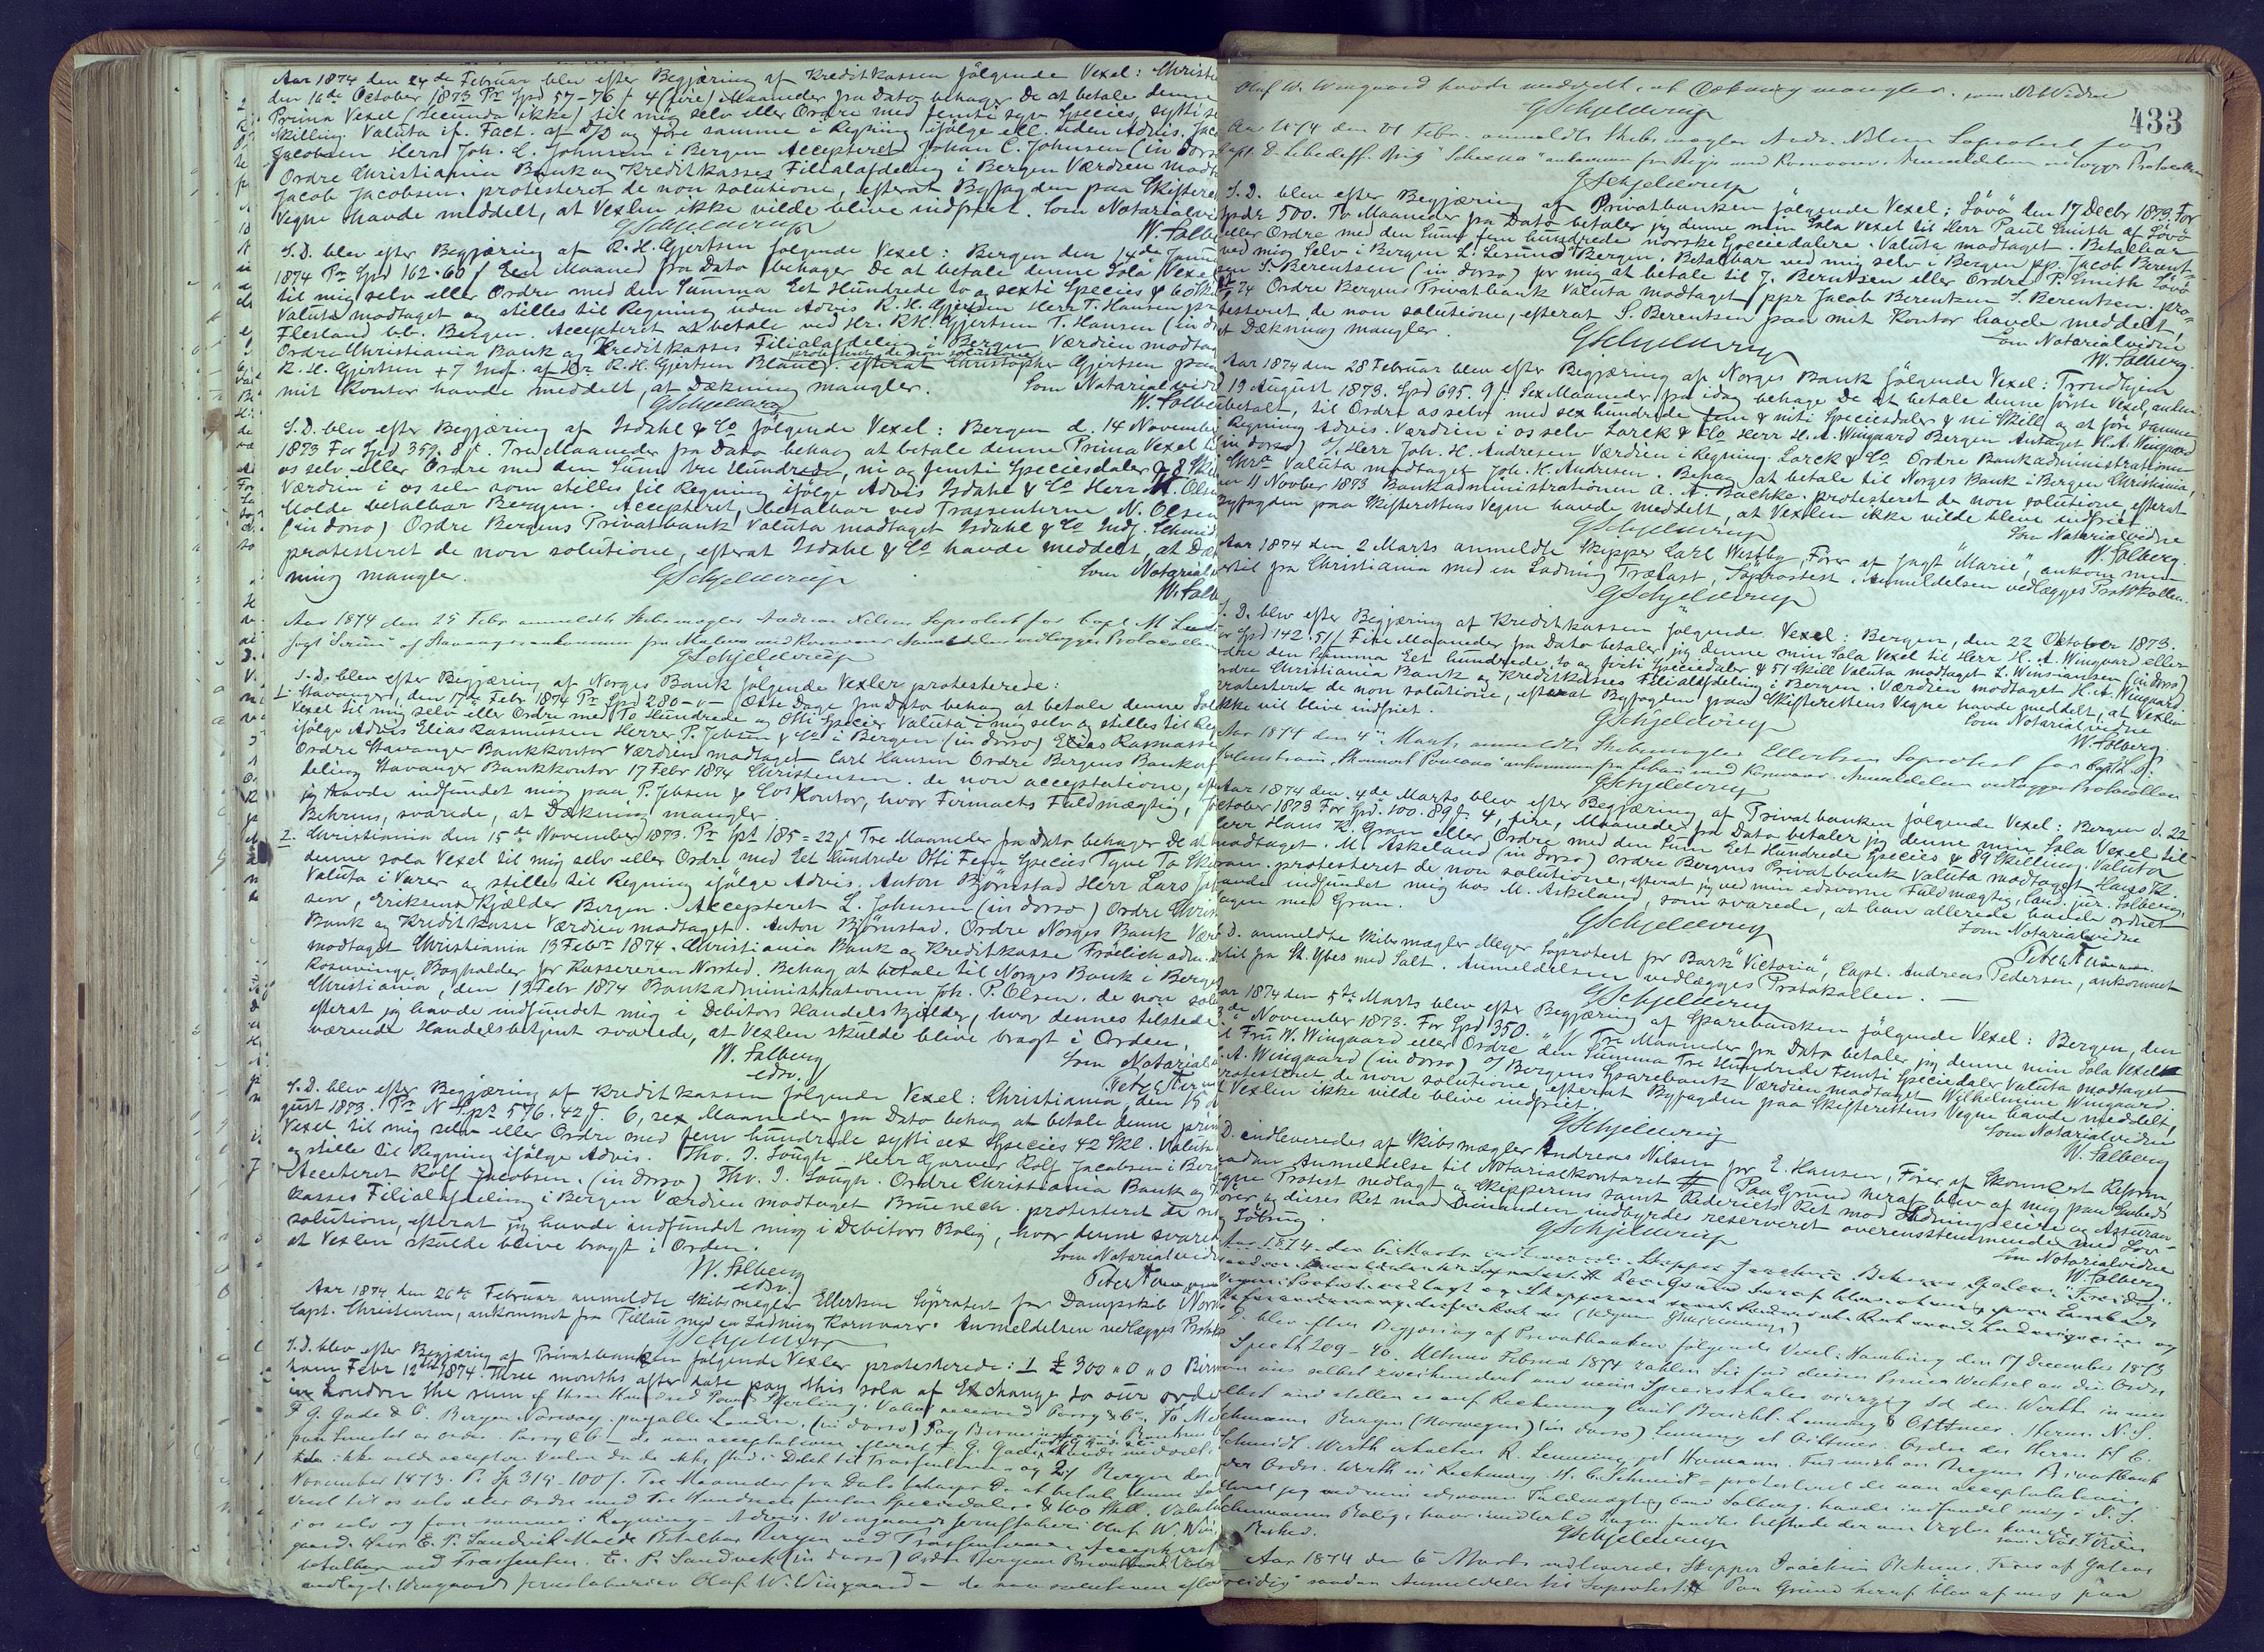 Aar 1874 den 24de Februar blev efter Begjæring af Kreditkassen følgende Vexel: Christi
den 16de October 1873 Pr Spd 57-76 ß 4 (fire) Maaneder fra Dato behager De at betale denne
Prima Vexel (Secunda ikke) til mig selv eller Ordre med femti syv Species sytti s
Skilling. Valuta if. Fact. af D/D og före samme i Regning ifølge ell. uden Advis. Jac
Jacobsen Herrn Joh. C. Johnsen i Bergen Accepteret Johan C. Johnsen (in dorso
Ordre Christiania Bank og Kreditkasses Filialafdeling i Bergen Værdien modt
Jacob Jacobsen. protesteret de non solutione, efterat Byfogden paa Skifteret
Vegne havde meddelt, at Vexlen ikke vilde blive indfriet. Som Notarialvi
GSchjelderup W. Salbe
S.D. blev efter Begjæring af R. H. Gjertsen følgende Vexel: Bergen den 14de Janu
1874 Pr Spd 162.60 ß Een Maaned fra Dato behager De at betale denne Sola Vexe
til mig selv eller Ordre med den Summa Eet Hundrede to og sexti Species & 60 Ski
Valuta modtaget og stilles til Regning uden Advis R. H. Gjertsen Herr T. Hansen pr
Flesland bb. Bergen. Accepteret at betale ved Hr. R.H. Gjertsen T. Hansen (in do
Ordre Christiania Bank og Kreditkasses Filialafdeling i Bergen Værdien modta
protesteret de non solutione
R. H. Gjertsen + 7 Inds. af Hr R. H. Gjertsen Blanc. efterat Christopher Gjertsen paa
mit Kontor havde meddelt, at Dækning mangler. Som Notarialvid
GSchjelderup W. Salbe
S.D. blev efter Begjæring af Isdahl & Co følgende Vexel: Bergen d. 14 November
1873 For Spd 359. 8 ß. Tre Maaneder fra Dato behag at betale denne Prima Vexel t
os selv eller Ordre med den Sum tre Hundrede, ni og femti Speciesdaler & 8 Skil
Værdien i os selv som stilles til Regning ifølge Advis Isdahl & Co Herr N. Olse
Molde betalbar Bergen. Accepteret, betalbar ved Trassenterne N. Olsen
(in dorso) Ordre Bergens Privatbank Valuta modtaget Isdahl & Co Indf. Schmid
protesteret de non solutione, efterat Isdahl & Co havde meddelt, at Dæk
ning mangler. GSchjelderup Som Notarial
W. Salb
Aar 1874 den 25 Febr anmeldte Skibsmægler Andreas Nilsen Søprotest for Capt. M
Jagt af Stavanger ankommen fra Malmø med Kornvarer Anmeldelsen vedlægges Protocollen
GSchjelderup
S.D. blev efter Begjæring af Norges Bank følgende Vexler protesterede:
1. Stavanger, den 17de Febr 1874 Pr Spd 280-0- Otte Dage fra Dato behag at betale denne Sol
Vexel til mig selv eller Ordre med To Hundrede og Otti Species Valuta i mig selv og stilles til Reg
ifølge Advis Elias Rasmussen Herrer P. Jebsen & Co i Bergen (in dorso) Elias Rasmusse
Ordre Stavanger Bankkontor Værdien modtaget Carl Hansen Ordre Bergens Bankaf
deling Stavanger Bankkontor 17 Febr 1874 Christensen. de non acceptatione, efte
jeg havde indfundet mig paa P. Jebsen & Cos Kontor, hvor Firmaets Fuldmægtig, J
Behrens, svarede, at Dækning mangler.
2. Christiania den 15de November 1873. Pr Spt 185=22 ß Tre Maaneder fra Dato behager De at b
denne sola Vexel til mig selv eller Ordre med Eet Hundrede Otti Fem Species Tyve To Ski
Valuta i Varer og stilles til Regning ifølge Advis. Anton Bjørnstad Herr Lars Jo
sen, Eriksens Kjælder Bergen. Accepteret L. Johnsen (in dorso) Ordre Christ
Bank og Kreditkasse Værdien modtaget. Anton Bjørnstad. Ordre Norges Bank Vær
modtaget Christiania 13 Febr 1874. Christiania Bank og Kreditkasse Frölich adm.
Rosenvinge Bogholder for Kassereren Norsted. Behag at betale til Norges Bank i Berge
Christiania, den 13 Febr 1874 Bankadministrationen Joh. P. Olsen. de non sol
efterat jeg havde indfundet mig i Debitors Handelskjælder, hvor dennes tilstede
værende Handelsbetjent svarede, at Vexlen skulde blive bragt i Orden,
W. Salberg Som Notarial
edsv.
S.D. blev efter Begjæring af Kreditkassen følgende Vexel: Christiania, den 15 A
gust 1873. Pr N Spt 576.42 ß. 6, sex Maaneder fra Dato behag at betale denne prim
Vexel til mig selv eller Ordre med fem hundrede sytti sex Species 42 Skl. Valuta
og stille til Regning ifølge Advis. Tho. J. Lough. Herr Garver Rolf Jacobsen i Berg
Acceteret Rolf Jacobsen. (in dorso) Tho. J. Lough. Ordre Christiania Bank og K
kasses Filialafdeling i Bergen Værdien modtaget Bruenech. protesteret de no
solutione, efterat jeg havde indfundet mig i Debitors Bolig, hvor denne svared
at Vexlen skulde blive bragt i Orden. Som Notarialvidn
W. Salberg
edsv.
Aar 1874 den 26de Februar anmeldte Skibsmægler Ellertsen Søprotest for Dampskib Nor
Capt. Christensen, ankommet fra Pillau med en Ladning Kornvarer. Anmeldelsen vedlægges Protok
GSchjelderup
S.D. blev efter Begjæring af Privatbanken følgende Vexler protesterede: 1 £ 300 " 0 " 0 Birm
ham Febr 12th 1874. Three months after date pay this sola of Exchange to our orde
in London the sum of three Hundred Pounds Sterling. Value received Parry & Co. To M
F. G. Gade & C. Bergen Norway. payable London. (in dorso) Pay Birmingham
November 1873. Pr Sp 315. 100 ß. Tre Maaneder fra Dato behager De at betale denne Sol
Vexel til os selv eller Ordre med Tre Hundrede femten Speciedaler & 100 Skill. Valuta
i os selv og føre samme i Regning Advis. Wingaards Olaf W. Win
gaard. Herr E. P. Sandvik Molde Betalbar Bergen ved Trassenterne Accepteret
betalbar ved Trassenten. E. P. Sandvik (in dorso) Ordre Bergens Privatbank Valuta
modtaget. Wingaards Olaf W. Wingaard - de non solutione efter
433
Olaf W. Wingaard havde meddelt, at Dækning mangler. som Not Vidne
GSchjelderup
Aar 1874 den 27 Febr. anmeldte Skibsmægler Andr. Nilsen Søprotest for
Capt. D. Lebedeff. Brig ankommen fra Riga med Kornvarer. Anmeldelsen vedlægges Protocollen
GSchjelderup
S.D. blev efter Begjæring af Privatbanken følgende Vexel: Lövö den 17 Decbr 1873. For
Spdr 500. To Maaneder fra Dato betaler jeg denne min Sola Vexel til Herr Paul Smith af Lövö
eller Ordre med den Sum fem hundrede norske Speciedalere. Valuta modtaget. Betalbar
ved mig Selv i Bergen L. Bergen. Betalbar ved mig selv i Bergen pp. Jacob Berent-
sen S. Berentsen (in dorso) for mig at betale til J. Berntsen eller Ordre P. Smith Lövö
24 Ordre Bergens Privatbank Valuta modtaget ppr Jacob Berentsen S. Berentsen. pro-
testeret de non solutione, efterat S. Berentsen paa mit Kontor havde meddelt,
at Dækning mangler. GSchjelderup Som Notarialvidne
W. Salberg.
Aar 1874 den 28 Februar blev efter Begjæring af Norges Bank følgende Vexel: Trondhjem
19 August 1873. Spd 695. 9 ß. Sex Maaneder fra idag behage De at betale denne første Vexel, anden
ubetalt, til Ordre os selv med sex hundrede fem & niti Speciesdaler & ni Skill og at føre samme
i Regning Advis. Værdien i os selv Lorck & Co Herr H. A. Wingaard Bergen Antaget H. A. Wingaard
(in dorso) o/ Herr Joh. H. Andresen Værdien i Regning. Lorck & Co Ordre Bankadministrationen
Chra Valuta modtaget Joh. H. Andresen. Behag at betale til Norges Bank i Bergen Christiania,
den 11 Novber 1873 Bankadministrationen A. A. Bachke. protesteret de non solutione, efterat
Byfogden paa Skifterettens Vegne havde meddelt, at Vexlen ikke vilde blive indfriet
GSchjelderup Som Notarialvidne
W. Salberg.
Aar 1874 den 2 Marts anmeldte Skipper Carl Westby, Förer af Jagt "Marie", ankommen
hertil fra Christiania med en Ladning Trælast, Søprotest. Anmeldelsen vedlægges Protokollen.
GSchjelderup
S. D. blev efter Begjæring af Kreditkassen følgende Vexel: Bergen, den 22 Oktober 1873.
For Spd 142.51 ß Fire Maaneder fra Dato betaler jeg denne min Sola Vexel til Herr H. A. Wingaard eller
Ordre den Summa Eet hundrede, to og firti Speciedaler & 51 Skill Valuta modtaget L. Winsiansen (in dorso)
Ordre Christiania Bank og Kreditkasses Filialafdeling i Bergen. Værdien modtaget H. A. Wingaard.
protesteret de non solutione, efterat Byfogden paa Skifterettens Vegne havde meddelt, at Vexlen
ikke vil blive indfriet. GSchjelderup Som Notarialvidne
W. Salberg.
Aar 1874 den 4de Marts anmeldte Skibsmægler Ellertsen Søprotest for Capt. L. P.
Skonnert ankommen fra Libau med Kornvarer. Anmeldelsen vedlægges Protocollen
GSchjelderup
Aar 1874 den 4de Marts blev efter Begjæring af Privatbanken følgende Vexel: Bergen d. 22
October 1873 For Spd. 100. 89 ß. 4, fire, Maaneder fra Dato betaler jeg denne min Sola Vexel til
Herr Hans K. Gran eller Ordre med den Sum Eet Hundrede Species & 89 Skilling. Valuta
modtaget. M. Askeland (in dorso) Ordre Bergens Privatbank Valuta modtaget Hans K.
Gran. protesteret de non solutione, efterat jeg ved min edsvorne Fuldmægtig, Cand. jur. Salberg,
havde indfundet mig hos M. Askeland, som svarede, at han allerede havde ordnet
Sagen med Gran. GSchjelderup Som Notarialvidne
S. D. anmeldte Skibsmægler Meyer Søprotest for Bark "Victoria", Capt. Andreas Pedersen, ankommet
hertil fra St. Ybes med Salt. Anmeldelsen vedlægges Protokollen.
GSchjelderup
Aar 1874 den 5te Marts blev efter Begjæring af Sparebanken følgende Vexel: Bergen, den
3de November 1873. For Spd 350. " ß Tre Maaneder fra Dato betaler jeg denne min Sola Vexel
til Fru W. Wingaard eller Ordre den Summa Tre Hundrede Femti Speciedaler Valuta modtaget
H. A. Wingaard (in dorso) o/ Bergens Sparebank Værdien modtaget Wilhelmine Wingaard.
protesteret de non solutione, efterat Byfogden paa Skifterettens Vegne havde meddelt,
at Vexlen ikke vilde blive indfriet. Som Notarialvidne
GSchjelderup W. Salberg
S. D. indleveredes af Skibsmægler Andreas Nilsen for E. Hansen, Förer af Skonnert Reform,
saadan Anmeldelse til Notarialkontoret # Paa Grund heraf blev af mig paa Embeds
Vegne Protest nedlagt og Skipperens samt Rederiets Ret mod Ladningseiere og Assuran-
dører og disses Ret mod hinanden indbyrdes reserveret overensstemmende med Lov
og Søbrug. GSchjelderup Som Notarialvidne
W. Salberg
Aar 1874 den 6 Marts indleverede Skipper Joachim Behrens Galeas Freidig
saadan Anmeldelse til Søprotest. # Paa Grund heraf blev af mig paa Embeds
Vegne Protest nedlagt og Skipperens samt Rederiets Ret mod Ladningseiere og
S. D. blev efter Begjæring af Privatbanken følgende Vexel: Hamburg den 17 December 1873
Specth 209-40. Ultimo Februar 1874 zahlen Sie für diesen Prima Wechsel an die Ordre
von uns selbst zweihundert und neun Speciesthaler vierzig Sd den Werth in uns
selbst und stellen es auf Rechnung laut Bericht. Lenning & Cittmer. Herrn N. S.
Bergen (Norwegen) (in dorso) Lenning & Cittmer. Ordre des Herrn H. C.
Schmidt. Werth erhalten R. Lenning Für mich an Bergens Privatbank
oder Ordre. Werth in Rechnung. H. C. Schmidt - protesteret de non acceptatione,
efterat jeg ved min edsvorne Fuldmægtig Cand Salberg. havde indfundet mig i N. S.
Bolig, hvor imidlertid Ingen fandtes tilstede der om Vexlen kunde give
Besked. GSchjelderup som Not. Vidne
Aar 1874 den 6 Marts indleverede Skipper Joachim Behrens, Fører af Galeas
Freidig saadan Anmeldelse til Søprotest. # Paa Grund heraf blev af mig paa